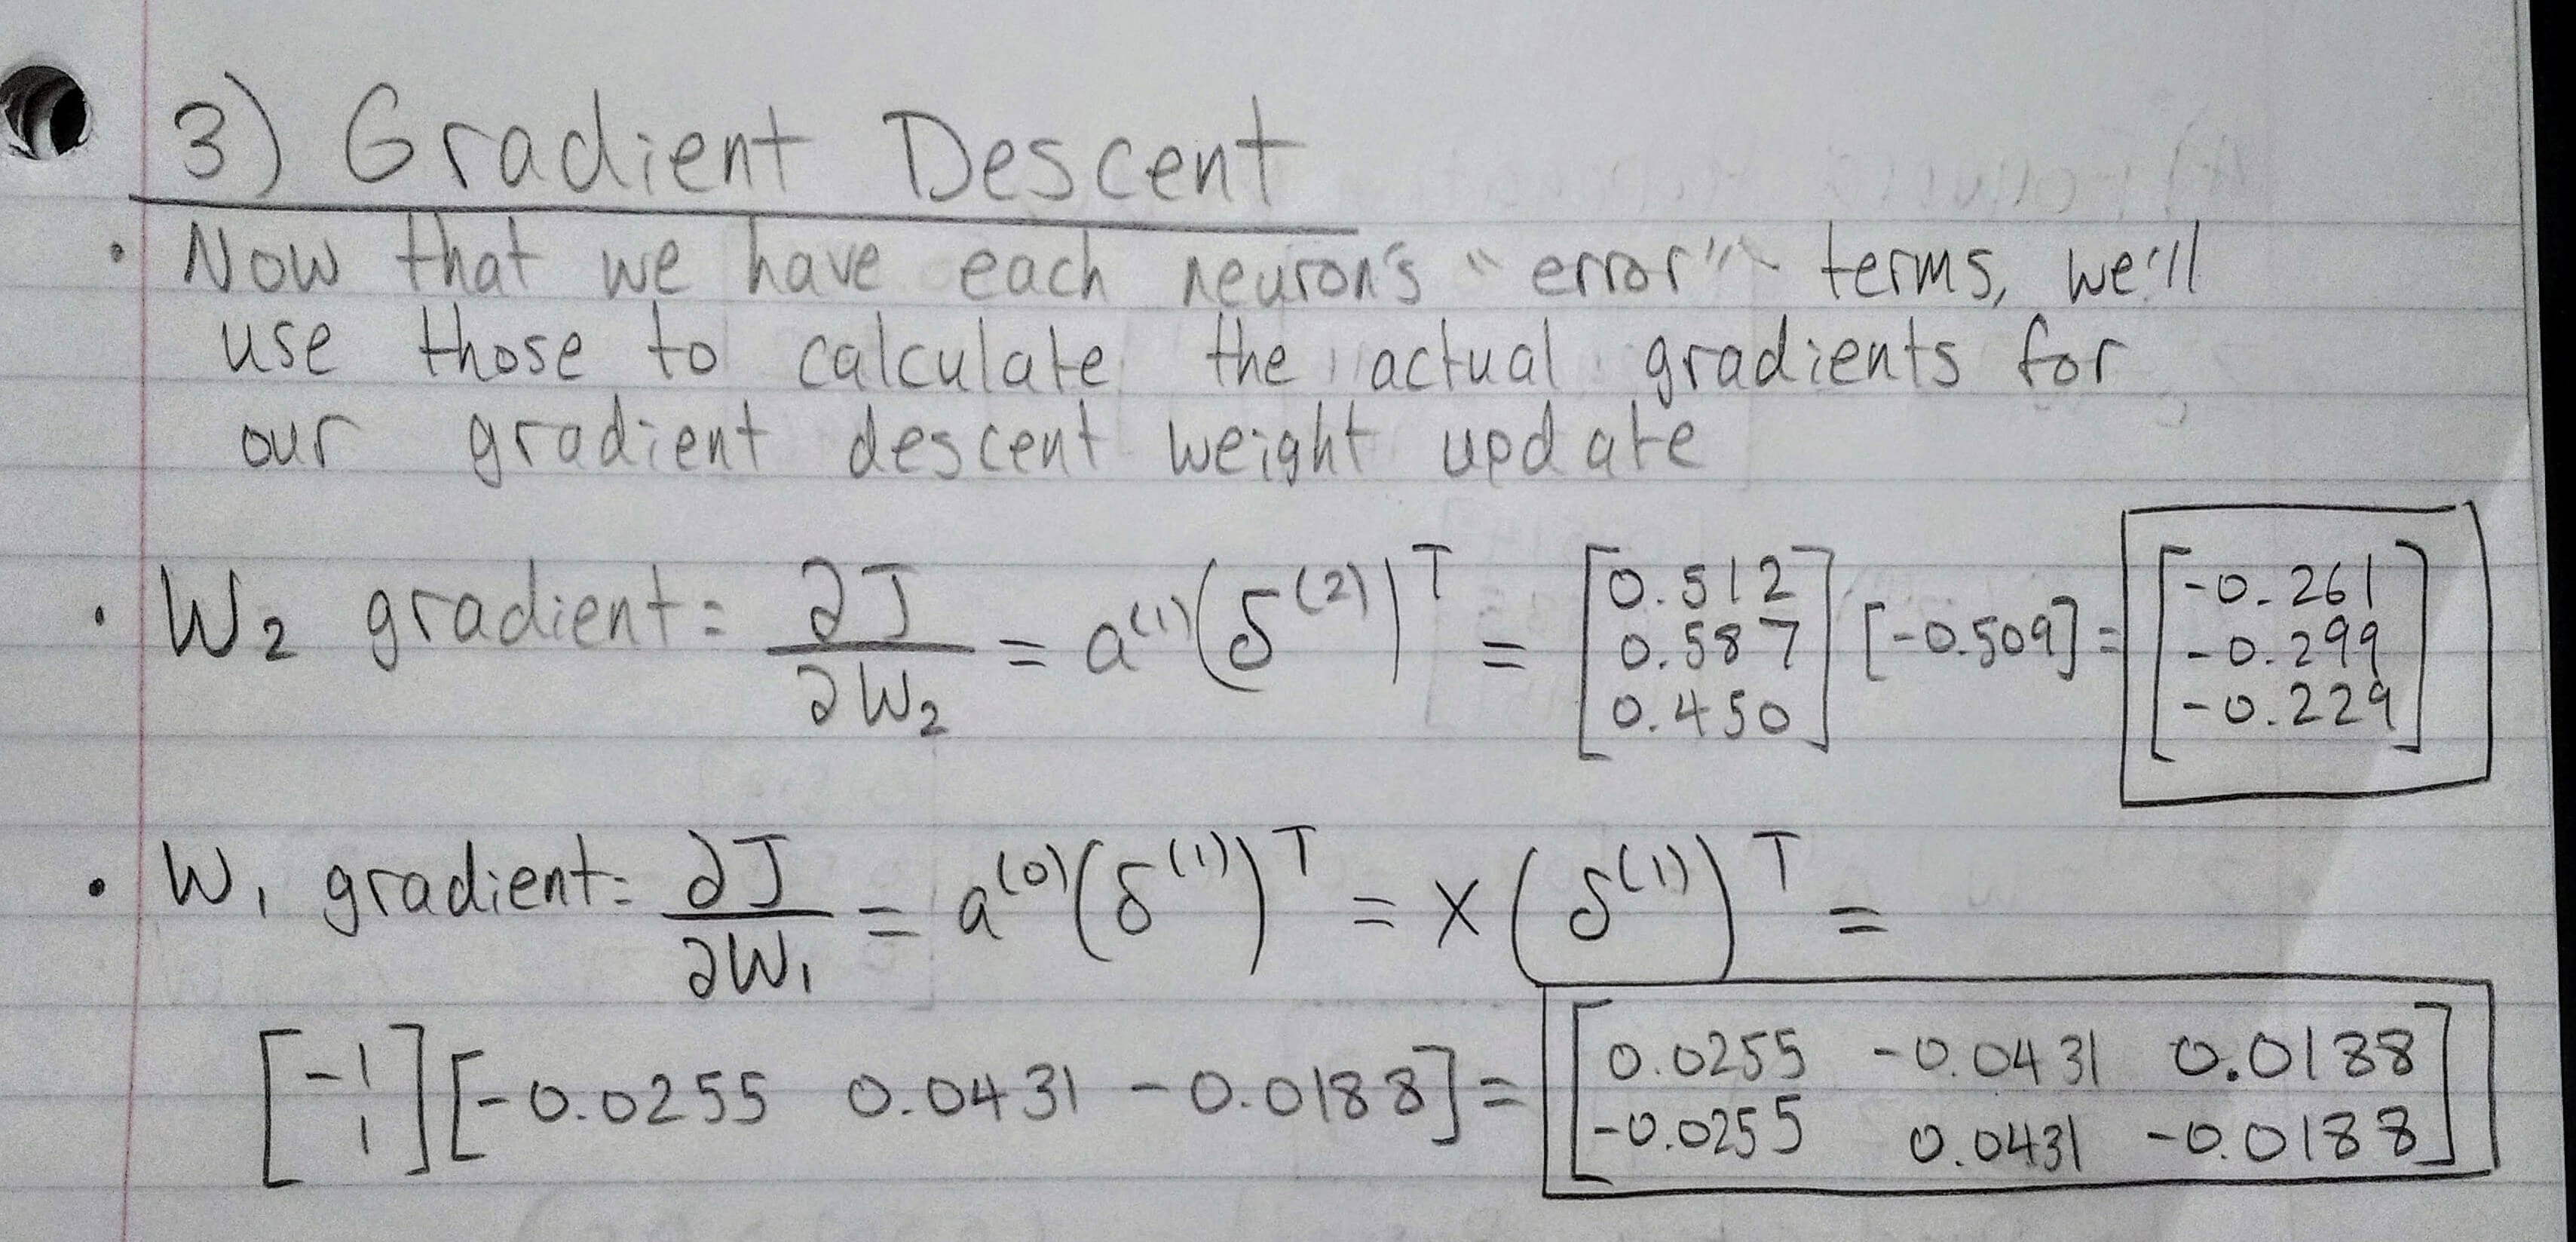 3) Gradient Descent
• Now that we have each neuron's "error" terms, we'll
use those to calculate the actual gradients for
our gradient descent weight update
• W₂ gradient = ∂J/∂W₂ = a⁽¹⁾(δ⁽²⁾)ᵀ = [0.512 0.587 0.450] [-0.509] = [-0.261 -0.299 -0.229]
• W₁ gradient = ∂J/∂W₁ = a⁽⁰⁾(δ⁽¹⁾)ᵀ = x(δ⁽¹⁾)ᵀ =
[-1 1] [-0.0255 0.0431 -0.0188] = [0.0255 -0.0431 0.0188
-0.0255 0.0431 -0.0188]